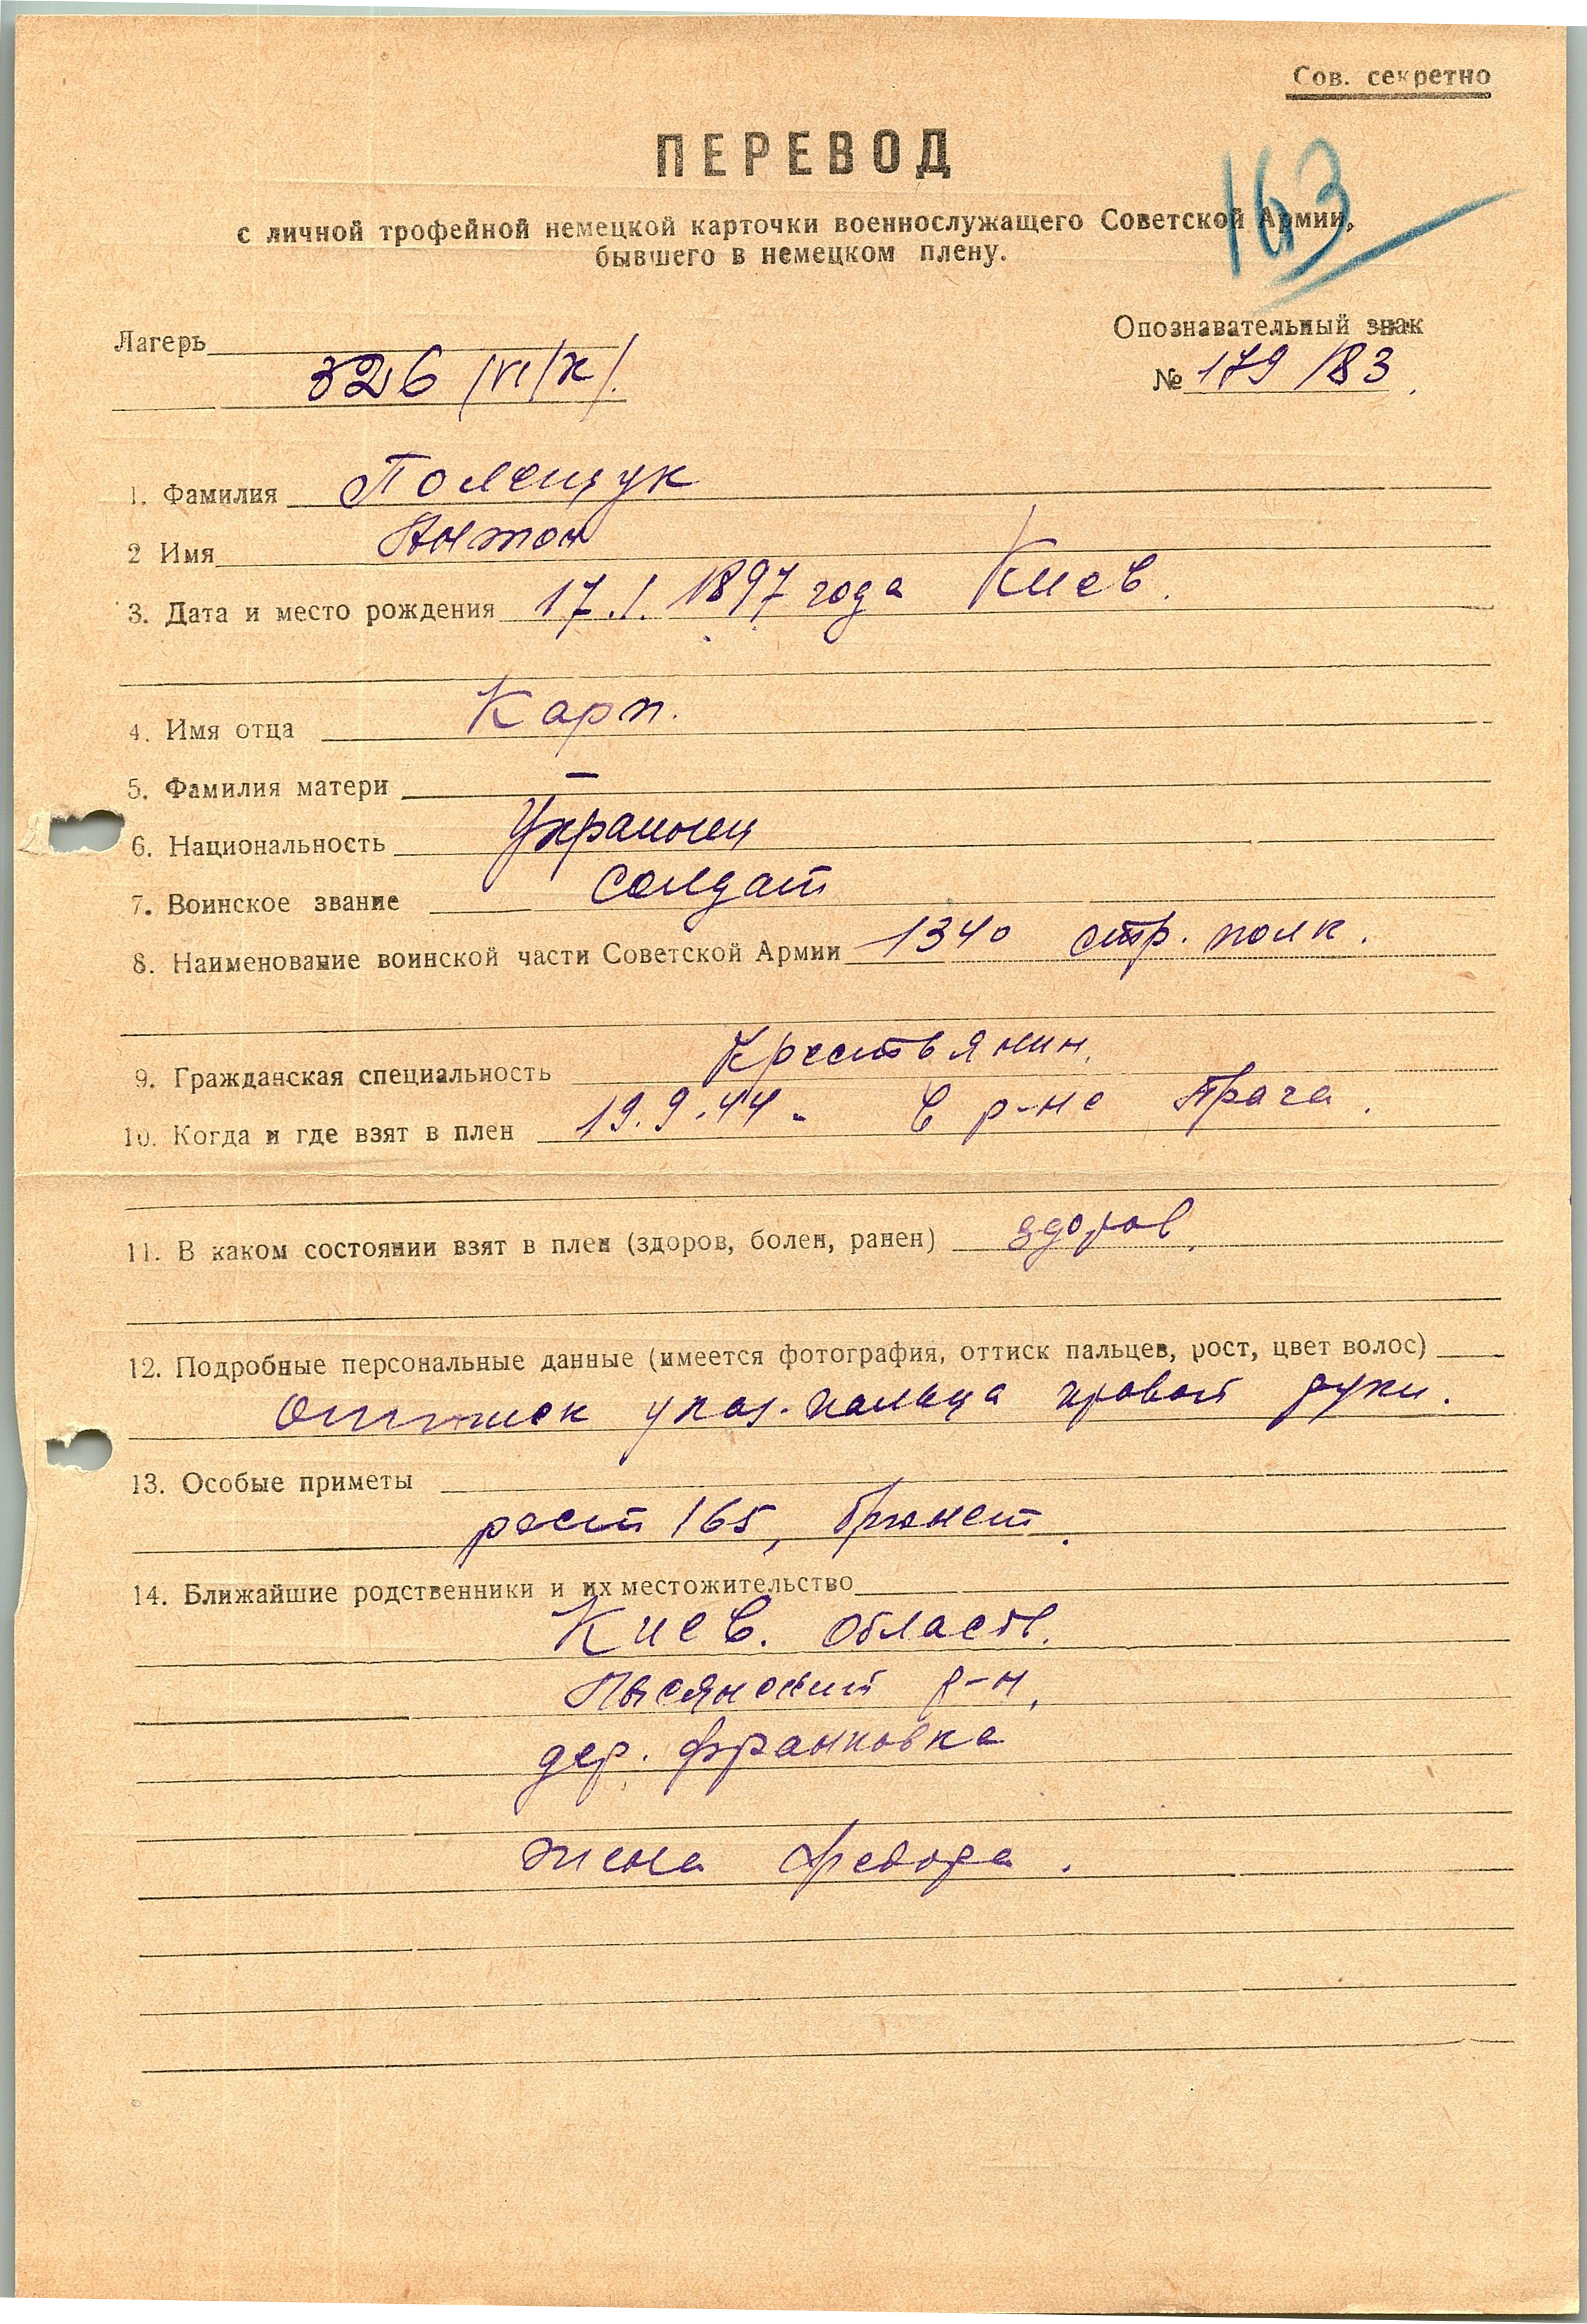 Сов. секретно
ПЕРЕВОД
163
с личной трофейной немецкой карточки военнослужащего Советской Армии,
бывшего в немецком плену.
Лагерь 326 /VI/К/.
Опознавательный знак
№ 179/83.
1. Фамилия Полещук
2 Имя Антон
3. Дата и место рождения 17.1.1897 года Киев.
4. Имя отца Карп.
5. Фамилия матери —
6. Национальность Украинец
7. Воинское звание солдат
8. Наименование воинской части Советской Армии 1340 стр. полк.
9. Гражданская специальность Крестьянин.
10. Когда и где взят в плен 19.9.44. в р-не Прага.
11. В каком состоянии взят в плен (здоров, болен, ранен) здоров.
12. Подробные персональные данные (имеется фотография, оттиск пальцев, рост, цвет волос)
Оттиск указ. пальца правой руки.
13. Особые приметы
рост 165, брюнет.
14. Ближайшие родственники и их местожительство
Киев. область.
Лысянский р-н,
дер. Франковка
жена Федора.